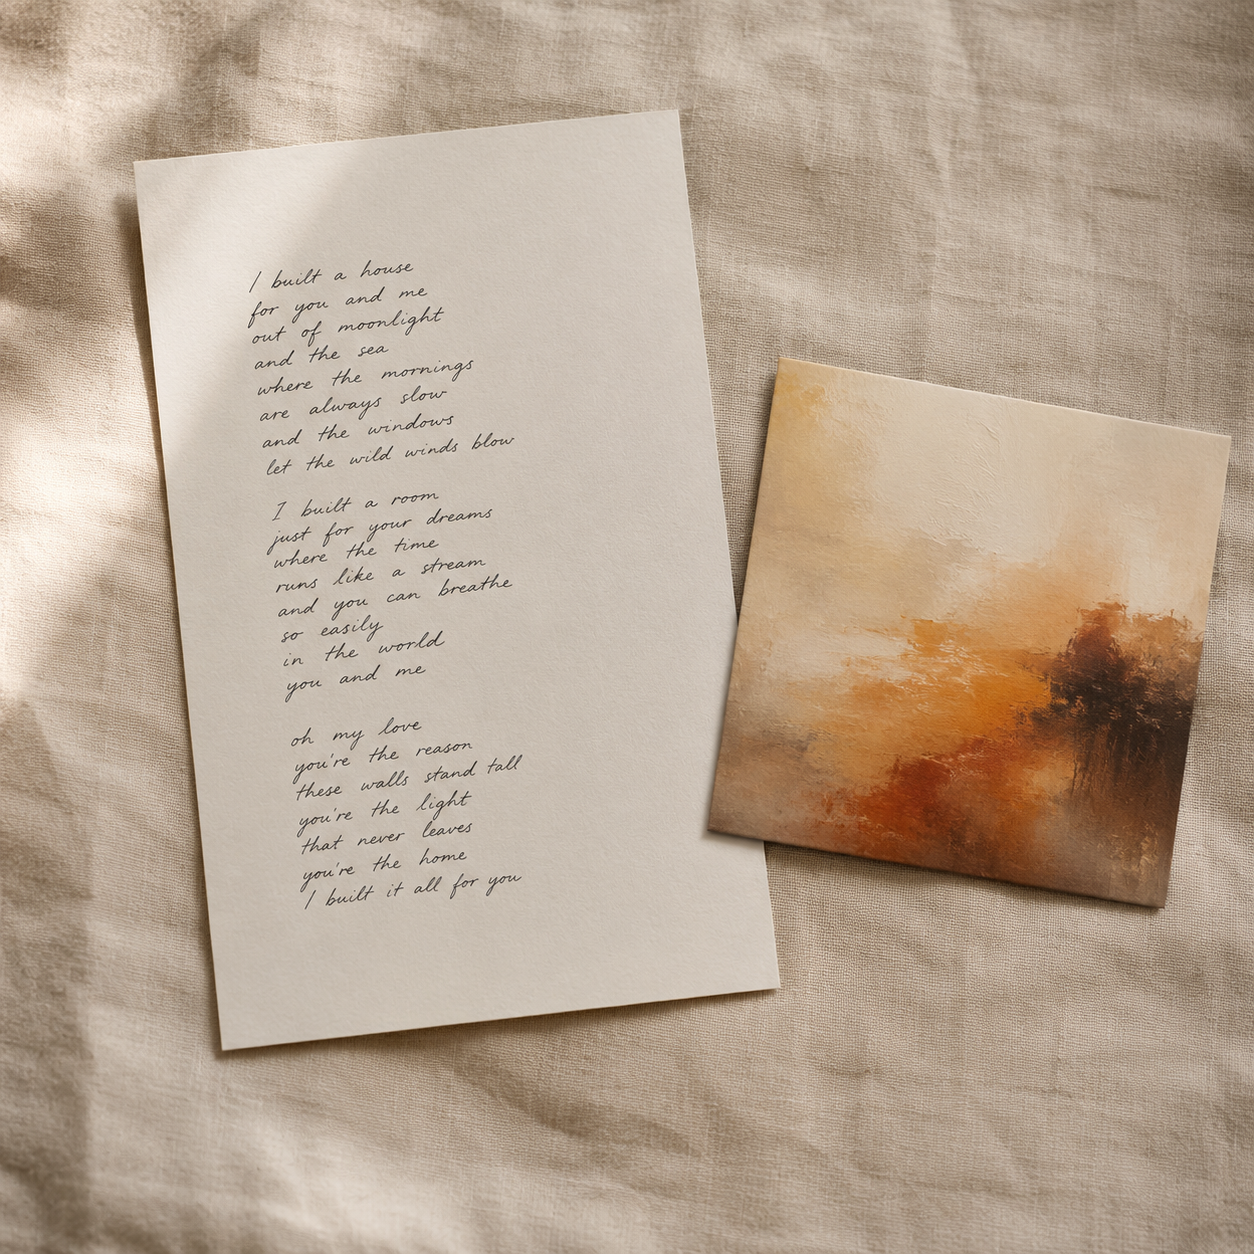 I built a house
for you and me
out of moonlight
and the sea
where the mornings
are always slow
and the windows
let the wild winds blow
I built a room
just for your dreams
where the time
runs like a stream
and you can breathe
so easily
in the world
you and me
oh my love
you're the reason
these walls stand tall
you're the light
that never leaves
you're the home
I built it all for you